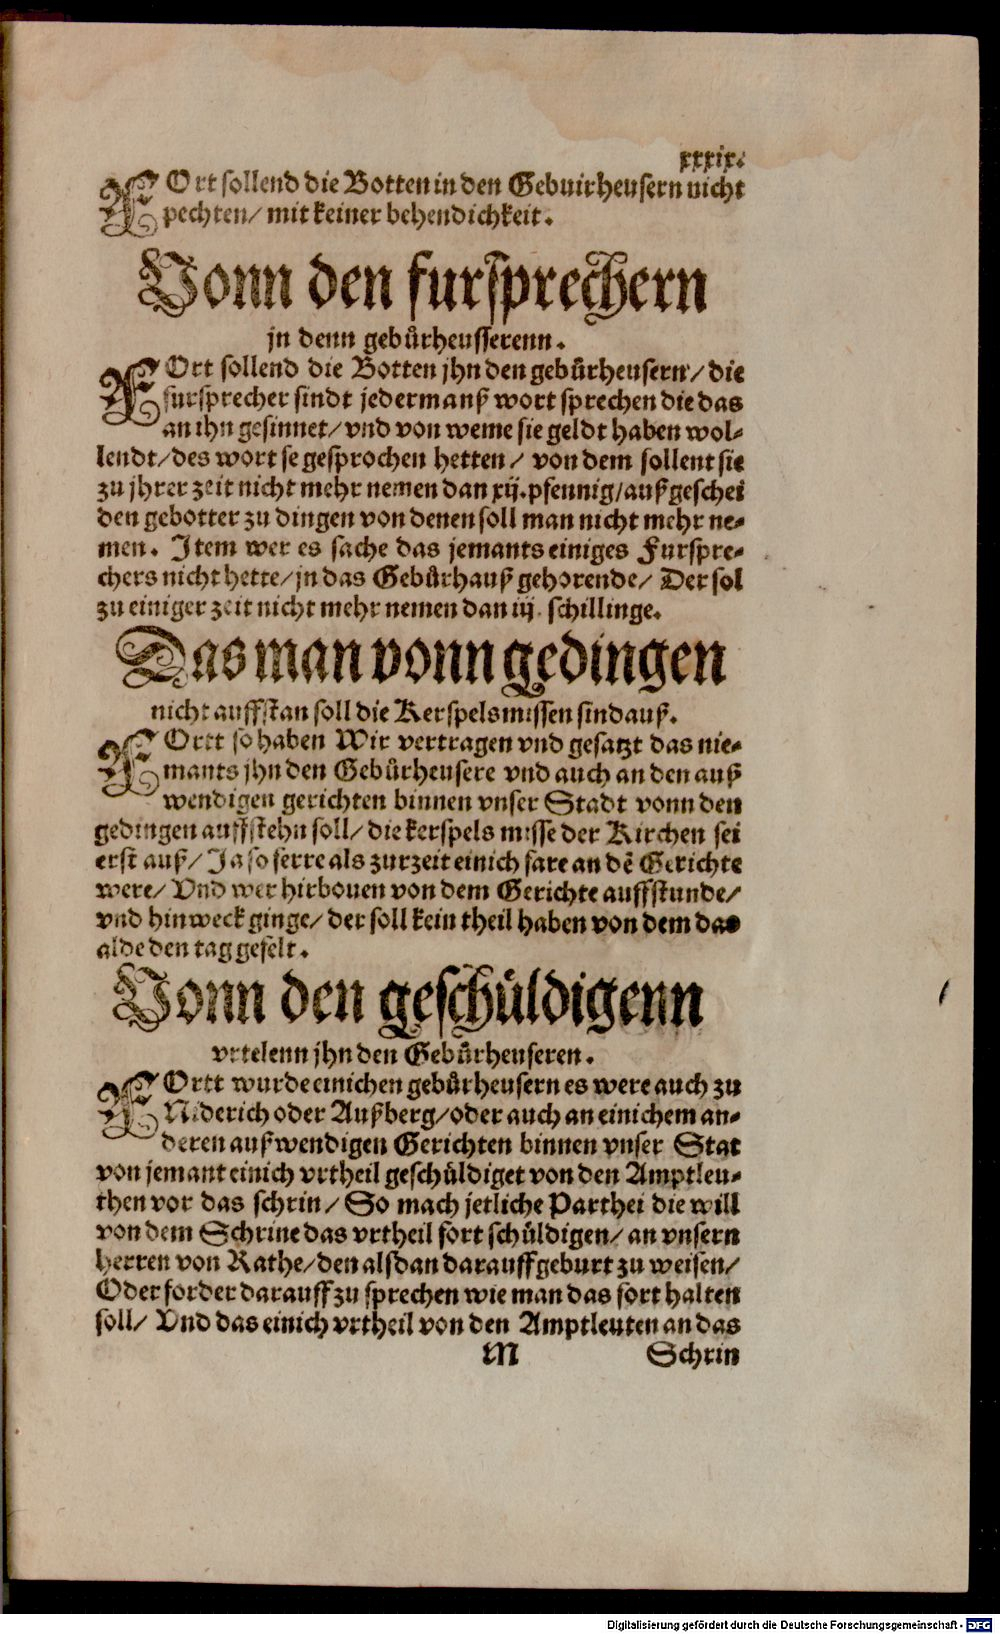 xxxix.
FOrt sollend die Botten in den Gebuirheusern nicht
pechten/ mit keiner behendichkeit.
Vonn den fursprechern
jn denn gebůrheusserenn.
FOrt sollend die Botten jhn den gebůrheusern/ die
fursprecher sindt jedermanß wort sprechen die das
an ihn gesinnet/ vnd von weme sie geldt haben wol-
lendt/ des wort se gesprochen hetten/ von dem sollent sie
zu jhrer zeit nicht mehr nemen dan xij. pfennig/ auß geschei
den gebotter zu dingen von denen soll man nicht mehr ne-
men. Item wer es sache das jemants einiges Furspre-
chers nicht hette/ jn das Gebůrhauß gehorende/ Der sol
zu einiger zeit nicht mehr nemen dan iij. schillinge.
Das man vonn gedingen
nicht auffstan soll die Kerspelsmissen sind auß.
FOrtt so haben Wir vertragen vnd gesatzt das nie-
mants jhn den Gebůrheusere vnd auch an den auß
wendigen gerichten binnen vnser Stadt vonn den
gedingen auffstehn soll/ die kerspels misse der Kirchen sei
erst auß/ Ja so ferre als zurzeit einich fare an dē Gerichte
were/ Vnd wer hirbouen von dem Gerichte auffstunde/
vnd hinweck ginge/ der soll kein theil haben von dem das
alde den tag geselt.
Vonn den geschůldigenn
vrtelenn jhn den Gebůrheuseren.
FOrtt wurde einichen gebůrheusern es were auch zu
Niderich oder Außberg/ oder auch an einichem an-
deren außwendigen Gerichten binnen vnser Stat
von jemant einich vrtheil geschůldiget von den Amptleu-
then vor das schrin/ So mach jetliche Parthei die will
von dem Schrine das vrtheil fort schůldigen/ an vnsern
herren von Rathe/ den alsdan darauff geburt zu weisen/
Oder forder darauff zu sprechen wie man das fort halten
soll/ Vnd das einich vrtheil von den Amptleuten an das
M Schrin
Digitalisierung gefördert durch die Deutsche Forschungsgemeinschaft - DFG